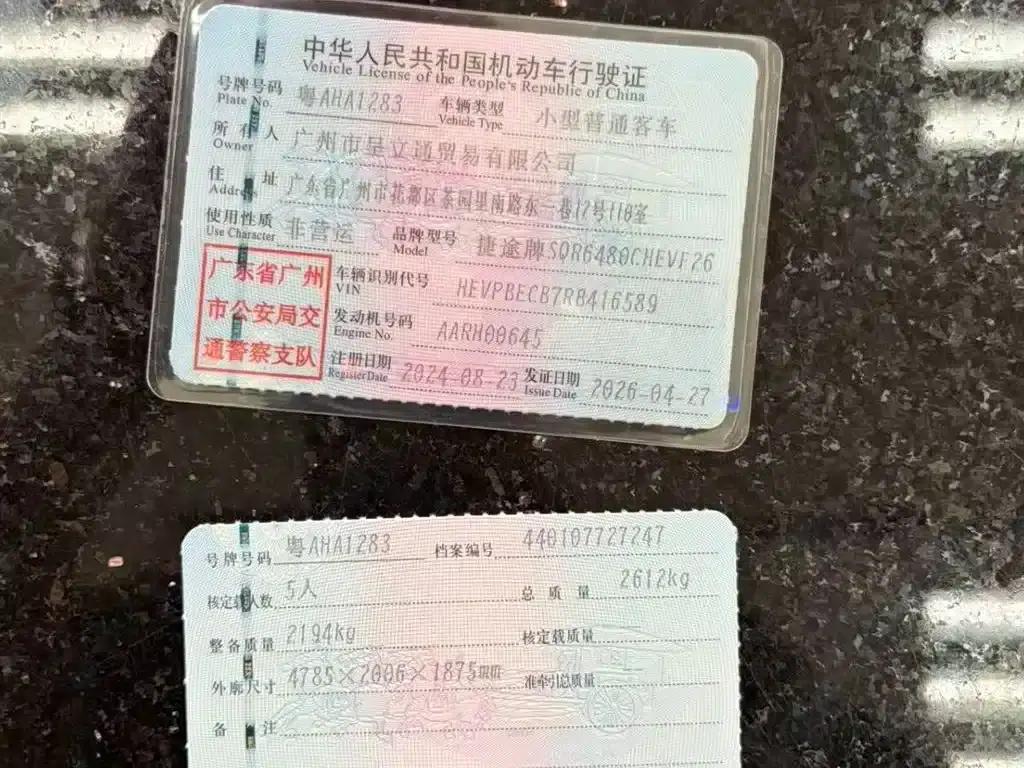 中华人民共和国机动车行驶证
Vehicle License of the People's Republic of China
号牌号码 粤AHA1283 车辆类型 小型普通客车
Plate No. Vehicle Type
所有人 广州市呈立通贸易有限公司
Owner
住址 广东省广州市花都区茶园里南路东一巷17号110室
Address
使用性质 非营运 品牌型号 捷途牌SQR6480CHEVF26
Use Character Model
广东省广州
市公安局交
通警察支队
车辆识别代号 HEVPBECB7RB416589
VIN
发动机号码 AARH00645
Engine No.
注册日期 2024-08-23 发证日期 2026-04-27
Register Date Issue Date
号牌号码 粤AHA1283 档案编号 440107727247
核定载人数 5人 总质量 2612kg
整备质量 2194kg 核定载质量
外廓尺寸 4785×2006×1875mm 准牵引总质量
备注